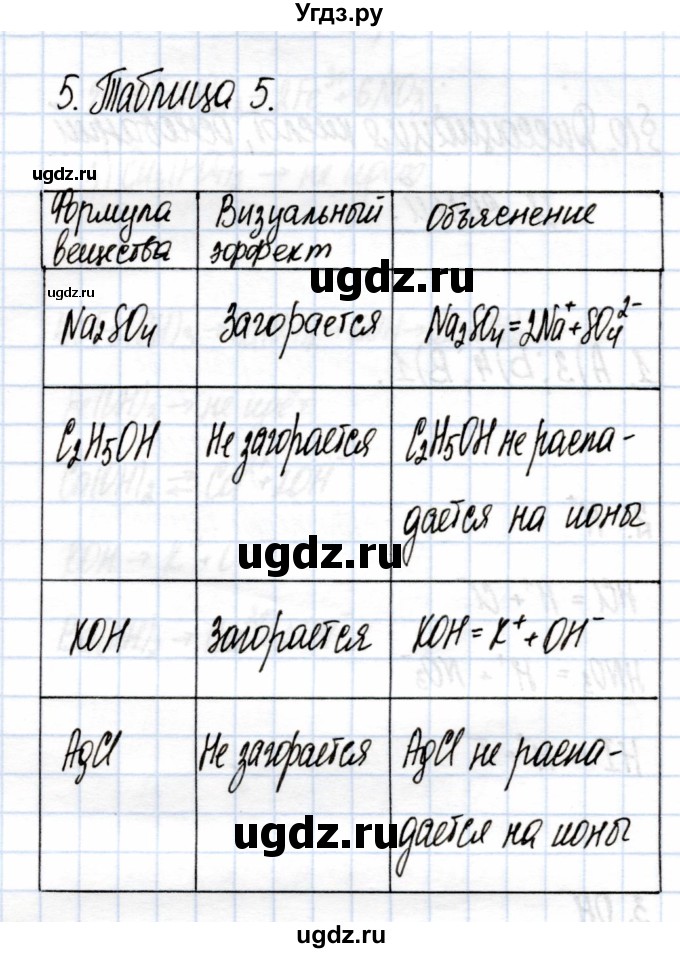 Угдз.ру
5. Таблица 5.
ugdz.ru
Формула вещества
Визуальный эффект
Объяснение
ugdz.ru
ugdz.ru
Na2SO4
Загорается
Na2SO4=2Na⁺+SO4²⁻
C2H5OH
Не загорается
C2H5OH не распа-
дается на ионы
ugdz.ru
KOH
Загорается
KOH=K⁺+OH⁻
AgCl
Не загорается
AgCl не распа-
дается на ионы
ugdz.ru
ugdz.ru